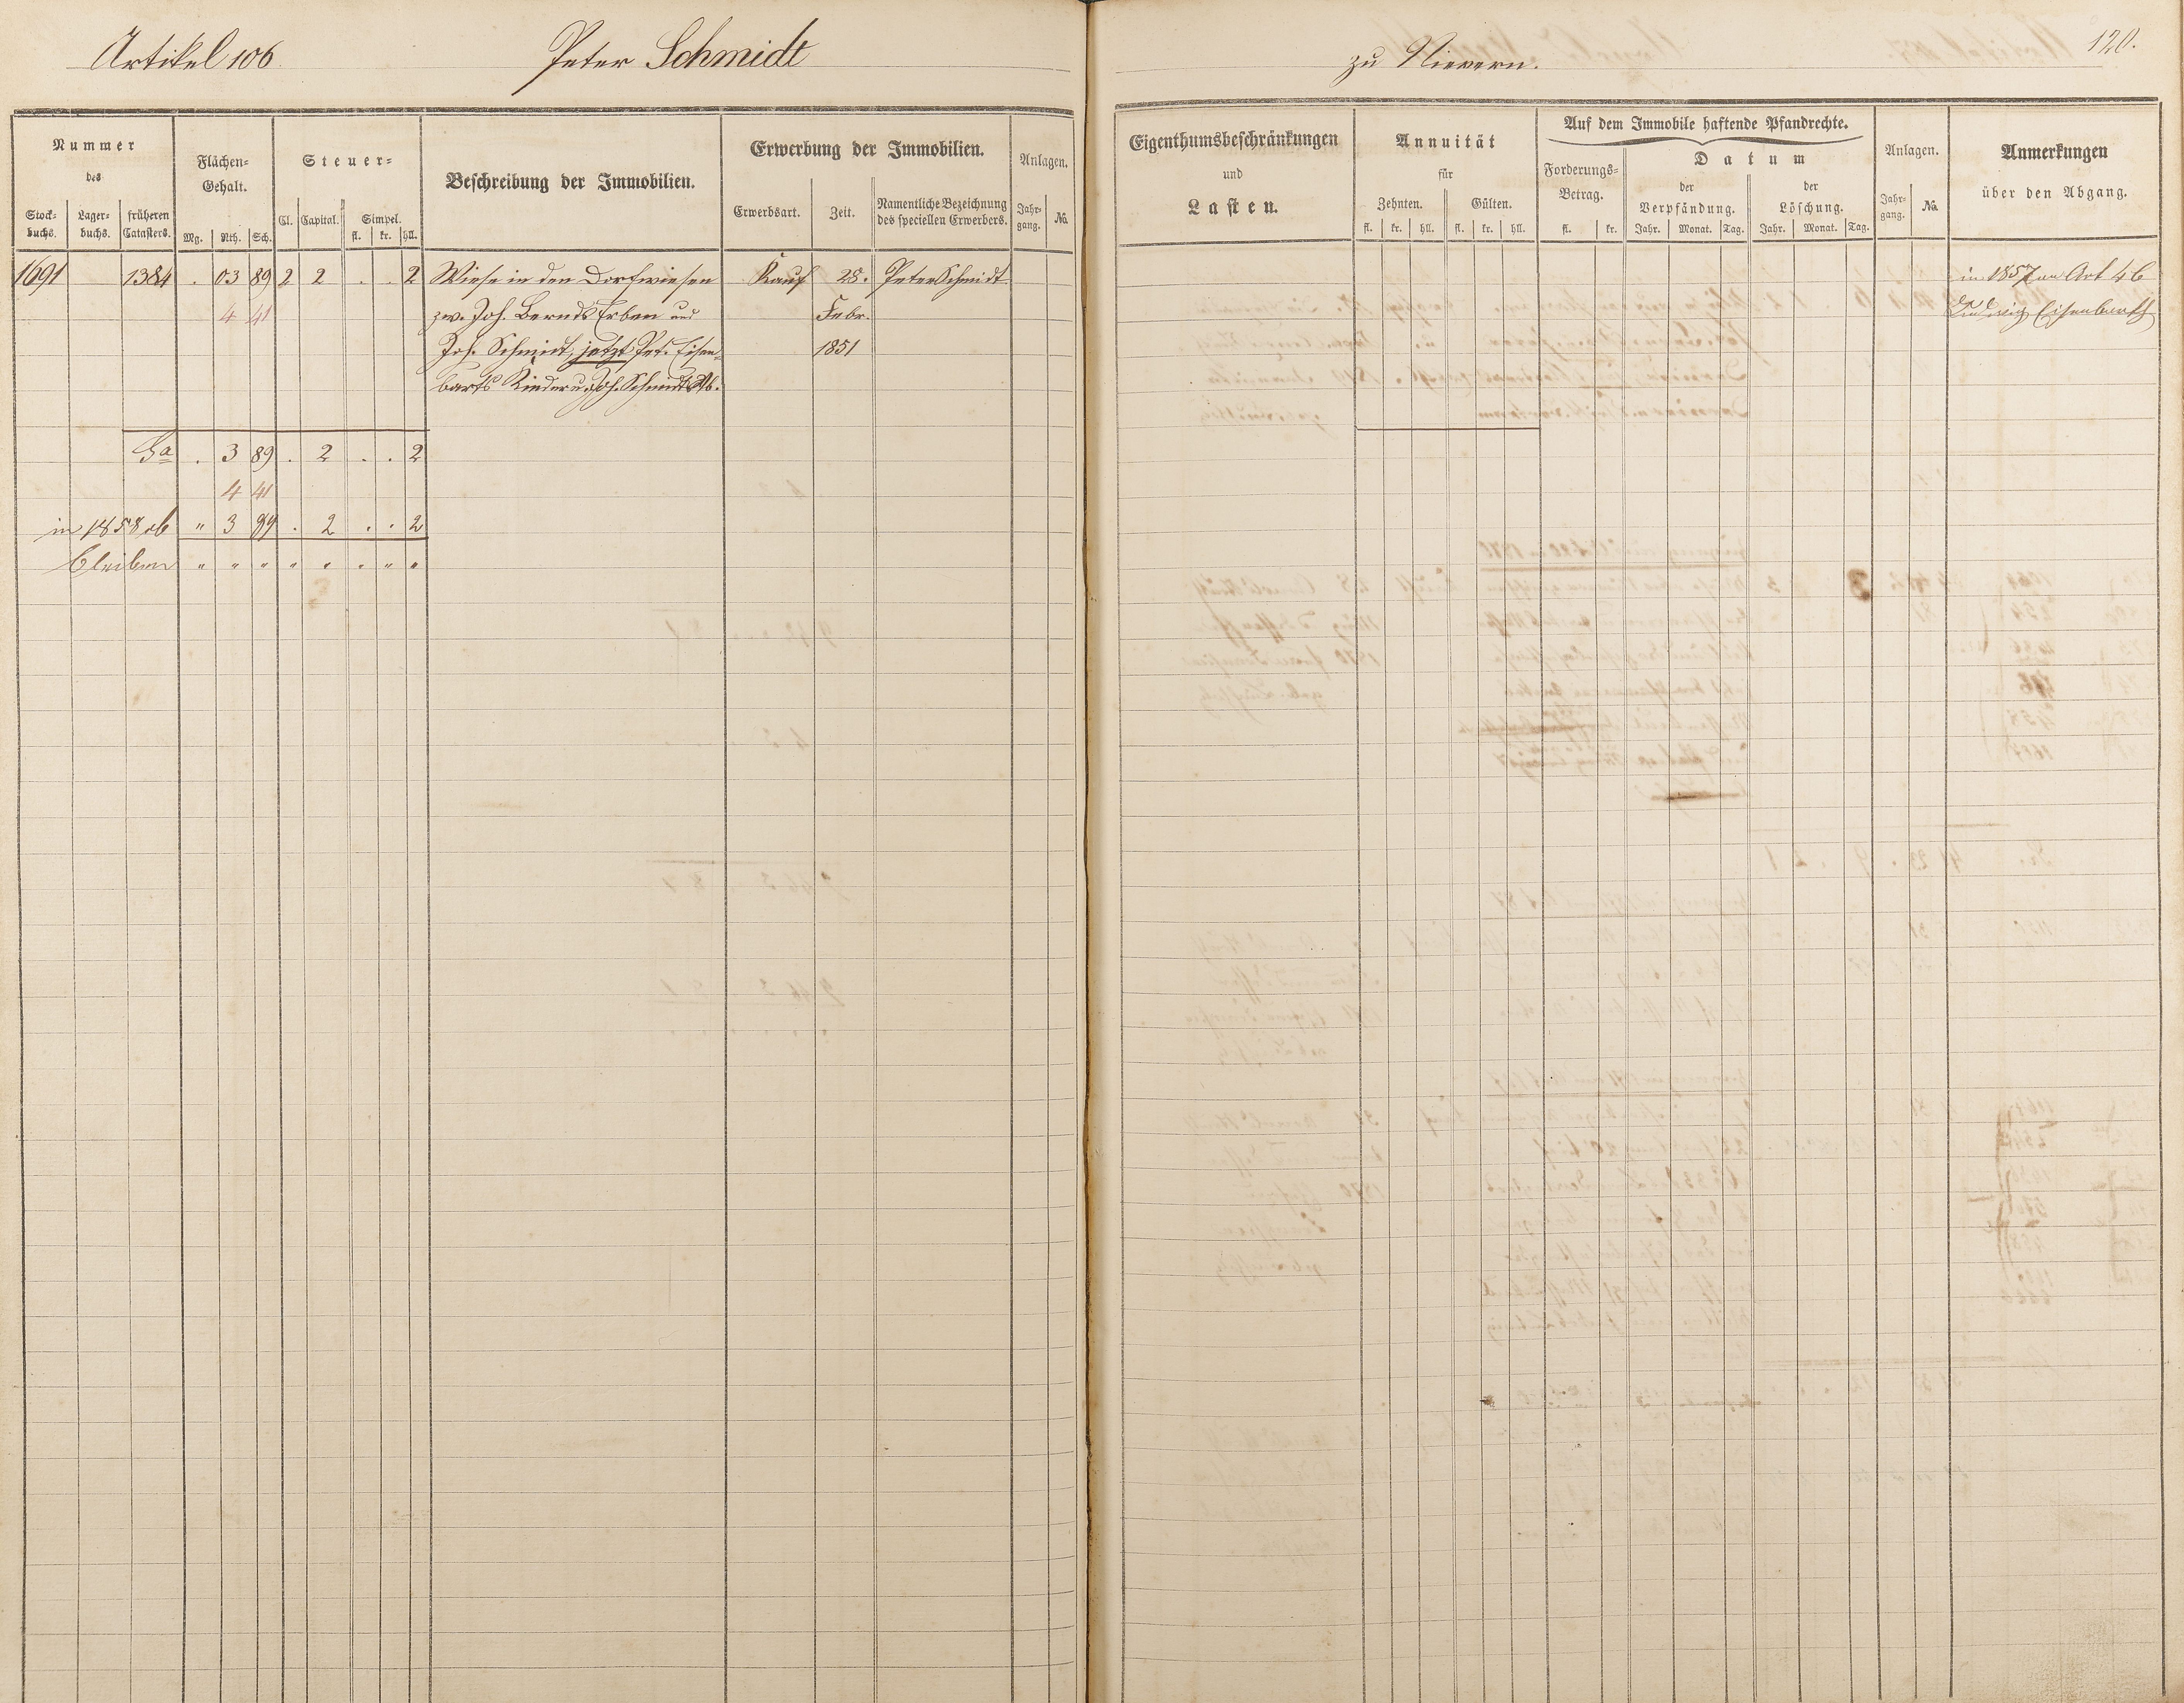 Artikel 106
Peter Schmidt
Nummer
des
Stock-
buchs.
Lager-
buchs.
früheren
Catasters.
Flächen-
Gehalt.
Mg.
Rth.
Sch.
Steuer-
Cl.
Capital.
Simpel.
fl.
kr.
hll.
Beschreibung der Immobilien.
Erwerbung der Immobilien.
Erwerbsart.
Zeit.
Namentliche Bezeichnung
des speciellen Erwerbers.
Anlagen.
Jahr-
gang.
No.
1691 1384 . 03 89 2 2 . . 2 Wiese in den Dorfwiesen Kauf 28. Peter Schmidt
4 41 zw. Joh. Bernds Erben und Febr.
Joh. Schmidt, jetzt Pet. Eisen- 1851
barts Kinder u. Joh. Schmidt
Sa . 3 89 . 2 . . 2
4 41
in 1858 ab " 3 89 . 2 . . 2
bleiben " " " " " " " "
zu Nievern.
120.
Eigenthumsbeschränkungen
und
Lasten.
Annuität
für
Zehnten.
fl.
kr.
hll.
Gülten.
fl.
kr.
hll.
Auf dem Immobile haftende Pfandrechte.
Forderungs-
Betrag.
fl.
kr.
Datum
der
Verpfändung.
Jahr.
Monat.
Tag.
der
Löschung.
Jahr.
Monat.
Tag.
Anlagen.
Jahr-
gang.
No.
Anmerkungen
über den Abgang.
in 1857 an Art 46
Ludwig Eisenbarth